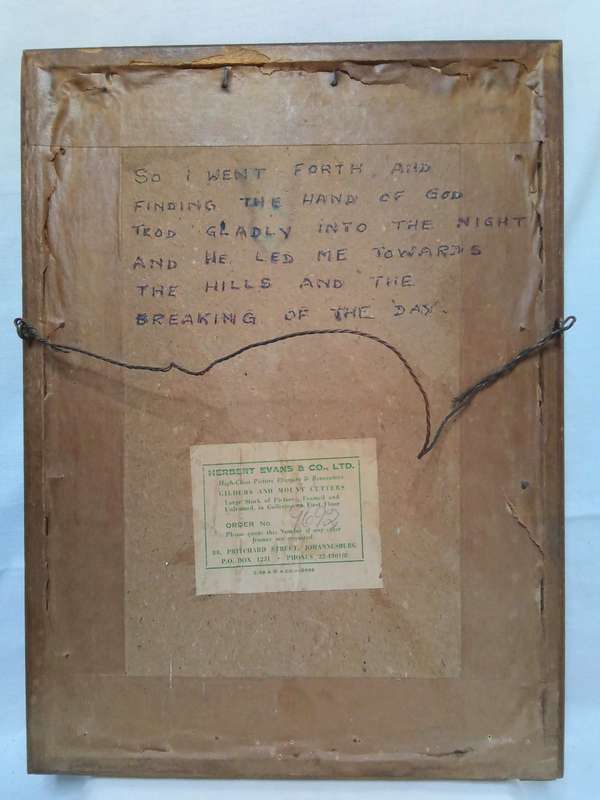 SO I WENT FORTH AND
FINDING THE HAND OF GOD
TROD GLADLY INTO THE NIGHT
AND HE LED ME TOWARDS
THE HILLS AND THE
BREAKING OF THE DAY.
HERBERT EVANS & CO., LTD.
High-Class Picture Framers & Decorators
GILDERS AND MOUNT CUTTERS
Large Stock of Pictures, Framed and
Unframed, in Galleries on First Floor
ORDER No. 9692
Please quote this Number if any other
frames are required.
PRITCHARD STREET, JOHANNESBURG
P.O. BOX 1231 • PHONES